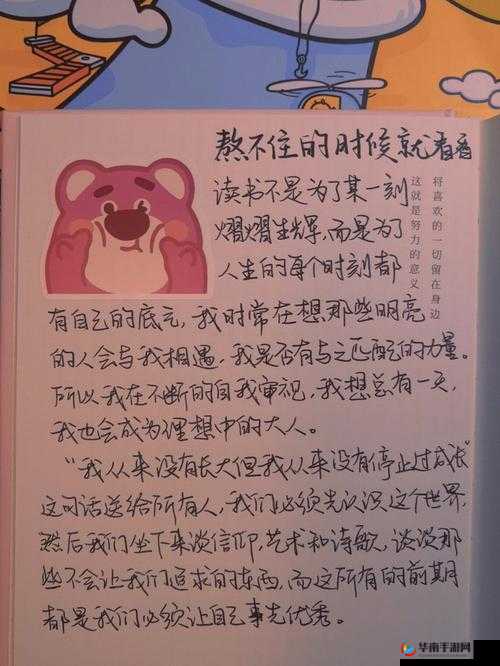 熬不住的时候就看看
将喜欢的一切留在身边
这就是努力的意义
读书不是为了某一刻
熠熠生辉,而是为了
人生的每个时刻都
有自己的底气,我时常在想那些明亮
的人会与我相遇,我是否有与之匹配的力量。
所以我在不断的自我审视,我想总有一天,
我也会成为理想中的大人。
“我从来没有长大但我从来没有停止过成长”
这句话送给所有人,我们必须先认识这个世界,
然后我们坐下来谈信仰,艺术和诗歌,谈谈那
些不会让我们追求的东西,而这所有的前期
都是我们必须让自己事先优秀。
华南手游网